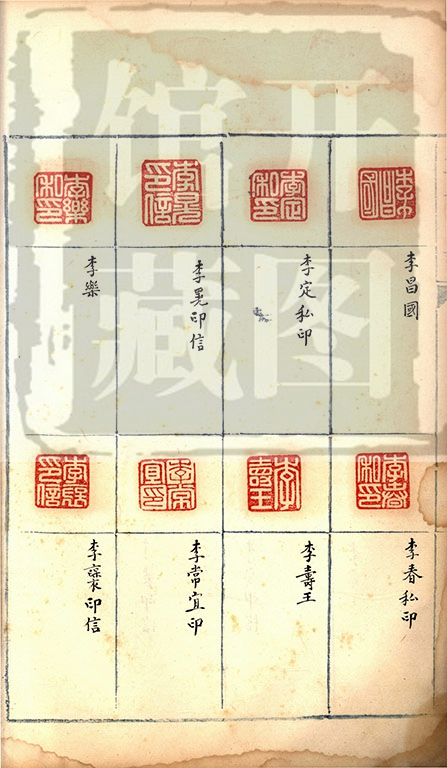 李昌國
李定私印
李晃印信
李樂
李春私印
李壽王
李常宜印
李襃印信
開图
馆藏